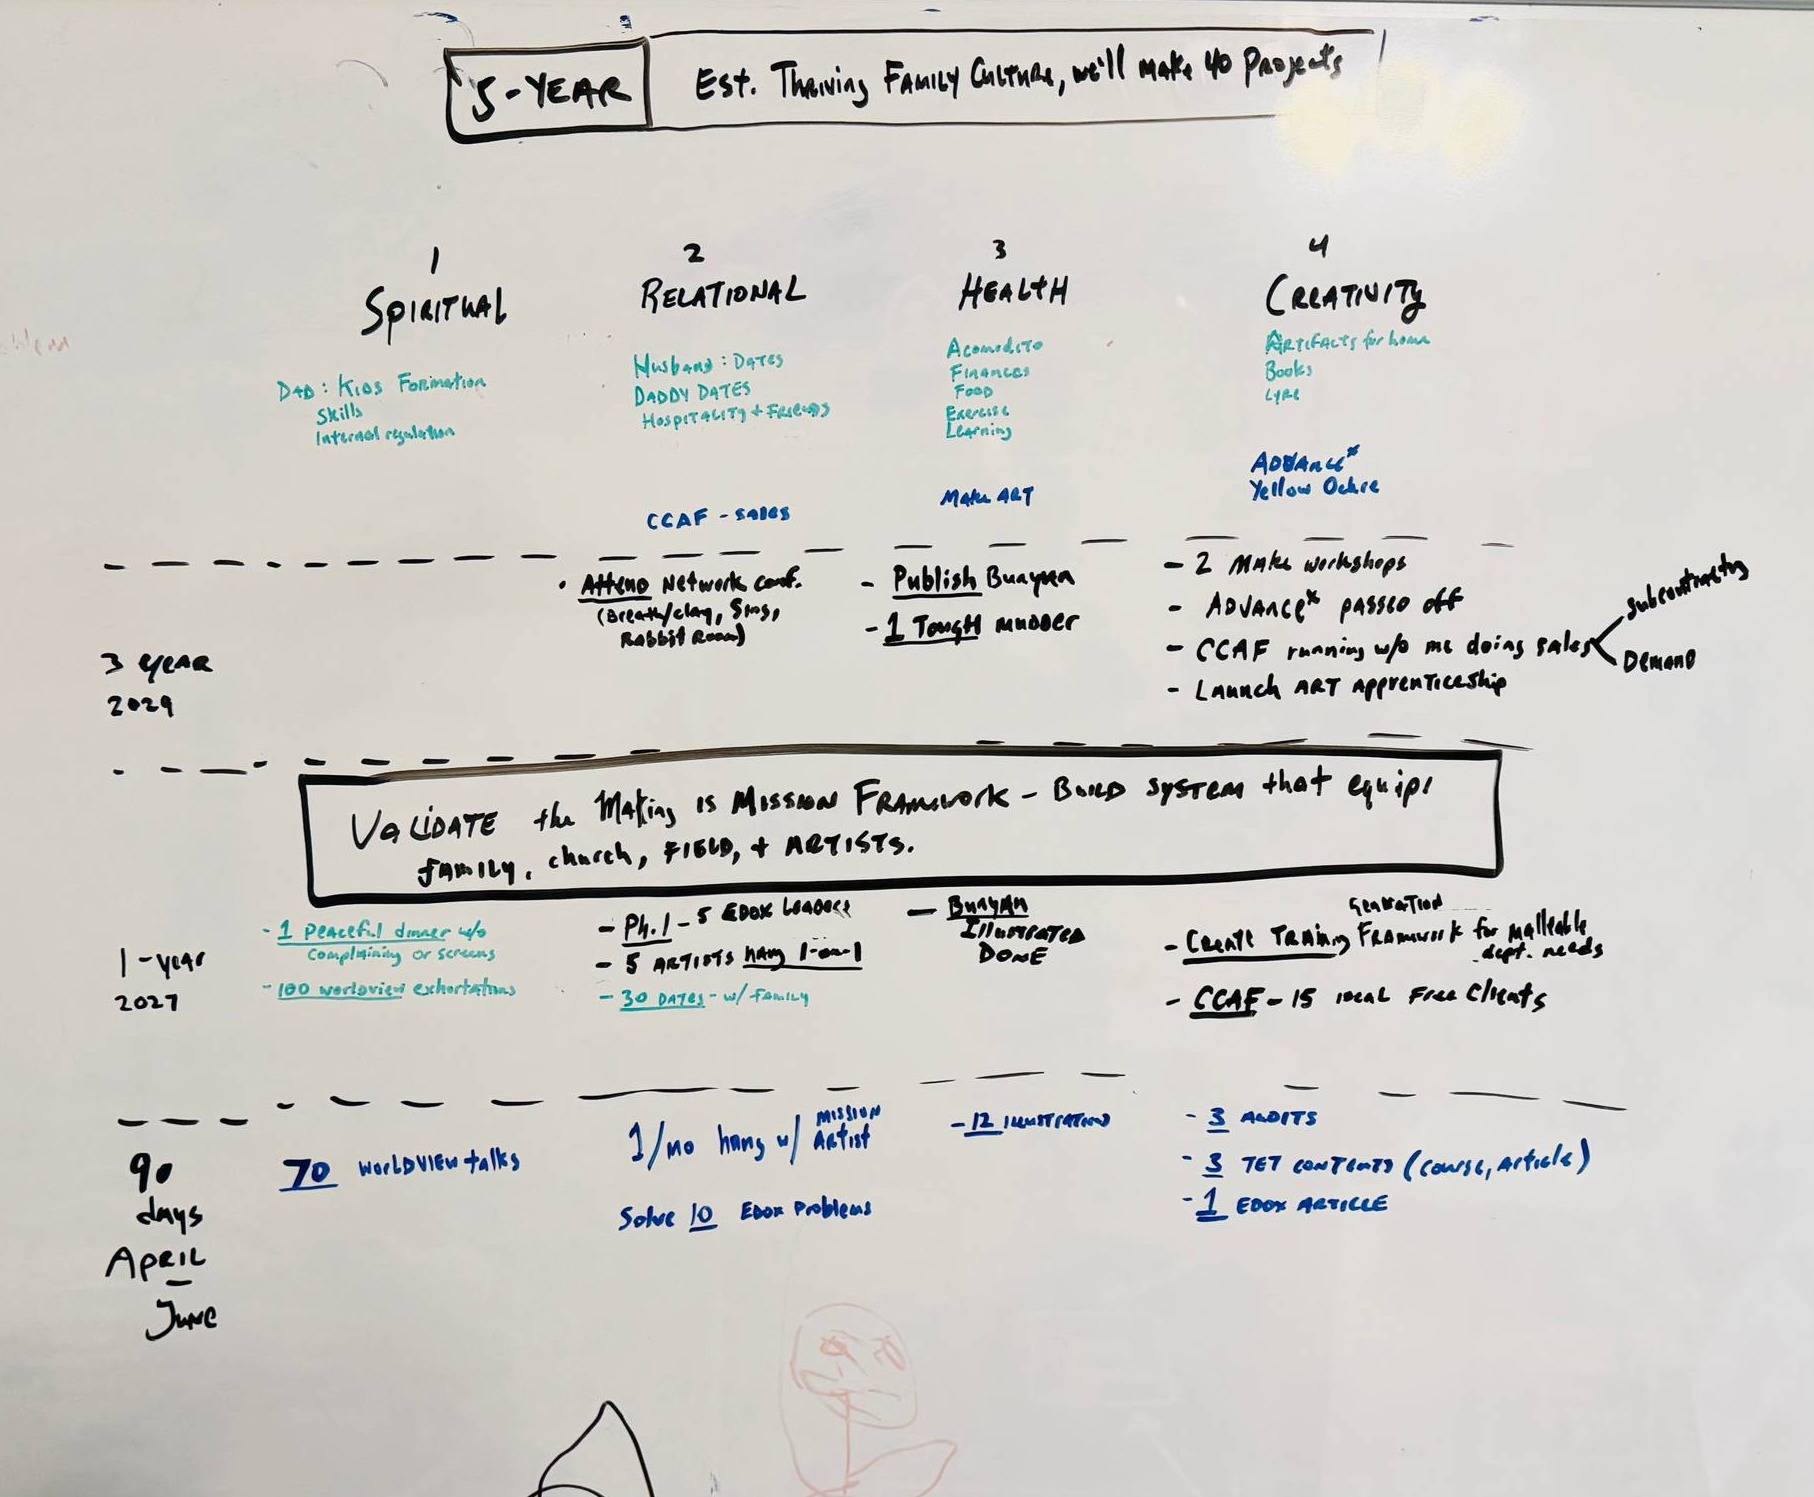 5-YEAR
Est. Thriving Family Culture, we'll make 40 Projects
1
SPIRITUAL
DAD: Kids Formation
Skills
Internal regulation
2
RELATIONAL
Husband: DATES
DADDY DATES
HOSPITALITY + FRIENDS
CCAF - SALES
3
HEALTH
Finances
FOOD
Exercise
Learning
Make ART
4
CREATIVITY
ARTIFACTS for home
Books
Lyre
ADVANCE*
Yellow Ochre
3 YEAR
2029
• Attend Network conf.
(Breath/clay, Sing,
Rabbit Room)
- Publish Bunyan
- 1 Tough mudder
- 2 Make workshops
- ADVANCE* passed off
- CCAF running w/o me doing sales
Subcontracting
Demand
- Launch ART Apprenticeship
VALIDATE the Making is Mission Framework - Build system that equips
family, church, FIELD, + ARTISTS.
1-year
2027
- 1 Peaceful dinner w/o
complaining or screens
- 100 worldview exhortations
- Ph.1 - 5 EDOX
- 5 ARTISTS hang 1-on-1
- 30 DATES - w/ family
- Bunyan
Illustrated
DONE
Generation
- Create Training Framework for malleable
dept. needs
- CCAF - 15 ideal Free Clients
90
days
APRIL
-
JUNE
70 WORLDVIEW talks
1/mo hang w/ MISSION
Artist
Solve 10 EDOX Problems
- 12 Illustrations
- 3 AUDITS
- 3 TET CONTENTS (course, Article)
- 1 EDOX ARTICLE